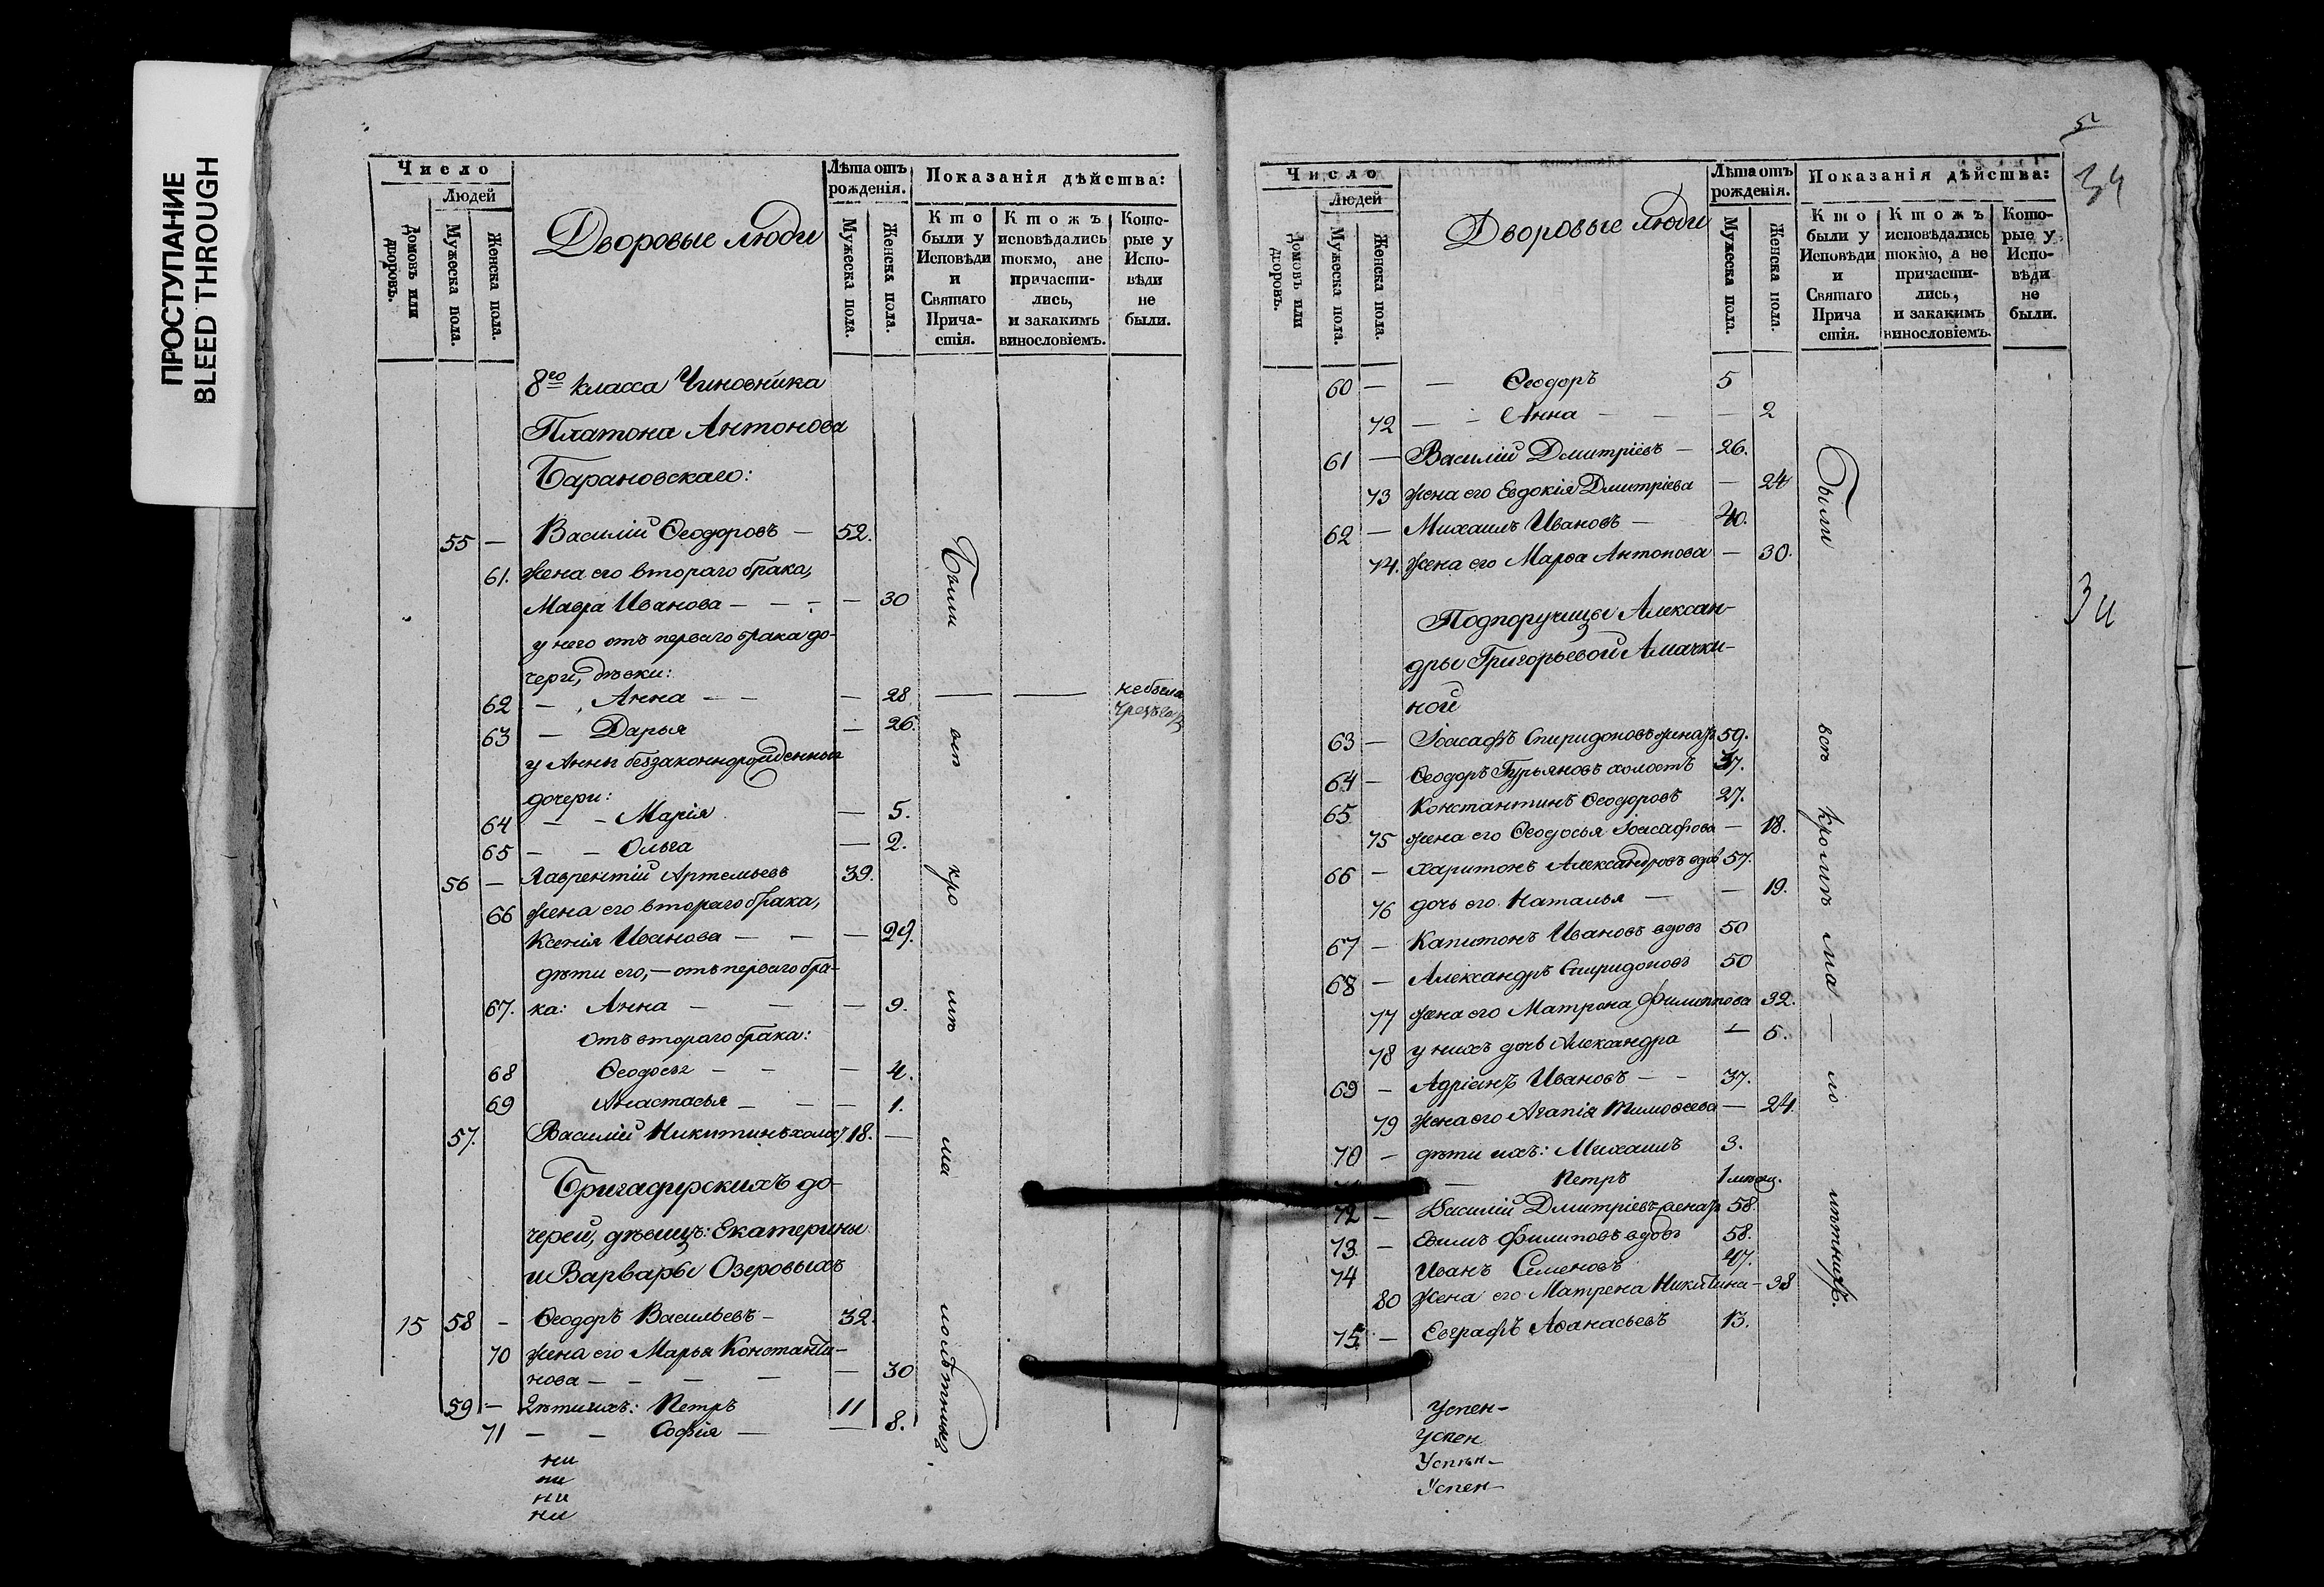 ПРОСТУПАНИЕ
BLEED THROUGH
Число
Людей
Домовъ или дворовъ.
Мужеска пола.
Женска пола.
Дворовые люди
Лѣта отъ рожденія.
Мужеска пола.
Женска пола.
Показанія дѣйства:
Кто были у Исповѣди и Святаго Прича-стія.
Ктожъ исповѣдались токмо, ане причасти-лись, и закакимъ винословіемъ.
Кото-рые у Испо-вѣди не были.
8го класса Чиновника
Платона Антонова
Барановскаго:
55 — Василій Ѳеодоровъ — 52.
61. жена его втораго брака,
Мавра Иванова — — — — 30
у него отъ перваго брака до-
чери, дѣвки:
62 — Анна — — — 28 — — небыла
63 — Дарья — 26.
у Анны беззаконнорожденныя
дочери:
64 — — Марія — 5.
65 — — Ольга — 2.
56 — Лаврентій Артемьевъ 39.
66 жена его втораго брака,
Ксенія Иванова — — — 29.
дѣти его, — отъ перваго бра-
67. ка: Анна — — — 9.
отъ втораго брака:
68 Ѳеодосья — — — 4.
69 Анастасья — — — 1.
57. Василій Никитинъ холос. 18. —
Бригадирскихъ до-
черей, дѣвицъ: Екатерины
и Варвары Озеровыхъ
15 58 — Ѳеодоръ Васильевъ — 32.
70 жена его Марья Константи-
нова — — — — — 30
59 — Дѣти ихъ: Петръ 11
71 — — Софія — — 8.
Были всѣ кро мѣ ма лолѣтнихъ
ни
ни
ни
ни
5
34
Число
Людей
Домовъ или дворовъ.
Мужеска пола.
Женска пола.
Дворовые люди
Лѣта отъ рожденія.
Мужеска пола.
Женска пола.
Показанія дѣйства:
Кто были у Исповѣди и Святаго Прича стія.
Ктожъ исповѣдались токмо, а не причасти-лись, и закакимъ винословіемъ.
Кото-рые у Испо-вѣди не были.
60 — — Ѳеодоръ 5
72 — — Анна — — — 2
61 — Василій Дмитріевъ — 26.
73 жена его Евдокія Дмитріева — 24
62 — Михаилъ Ивановъ — 40.
74. жена его Марѳа Антонова — 30.
Подпоручицы Алексан-
дры Григорьевой Амачки-
ной
63 — Іоасафъ Спиридоновъ женатъ 59.
64 — Ѳеодоръ Гурьяновъ холостъ 37.
65 Константинъ Ѳеодоровъ 27.
75 жена его Ѳеодосья Іоасафова — 18.
66 — Харитонъ Александровъ вдов 57.
76 дочь его Наталья — — 19.
67 — Капитонъ Ивановъ вдовъ 50
68 — Александръ Спиридоновъ 50
77 жена его Матрена Филиппова 32.
78 у нихъ дочь Александра — 5.
69 — Адріанъ Ивановъ — — 37.
79 жена его Агапія Тимоѳеева — 24.
70 — дѣти ихъ: Михаилъ 3.
— Петръ 1 мѣсяц.
72 — Василій Дмитріевъ женатъ 58.
73. — Ефимъ Филиповъ вдовъ 58.
74 Иванъ Семеновъ 47.
80 жена его Матрена Никитина — 38
75. — Евграфъ Аѳанасьевъ 13.
Были всѣ кромѣ ма — ло лѣтнихъ.
34
Успен-
Успен
Успѣн-
Успен-